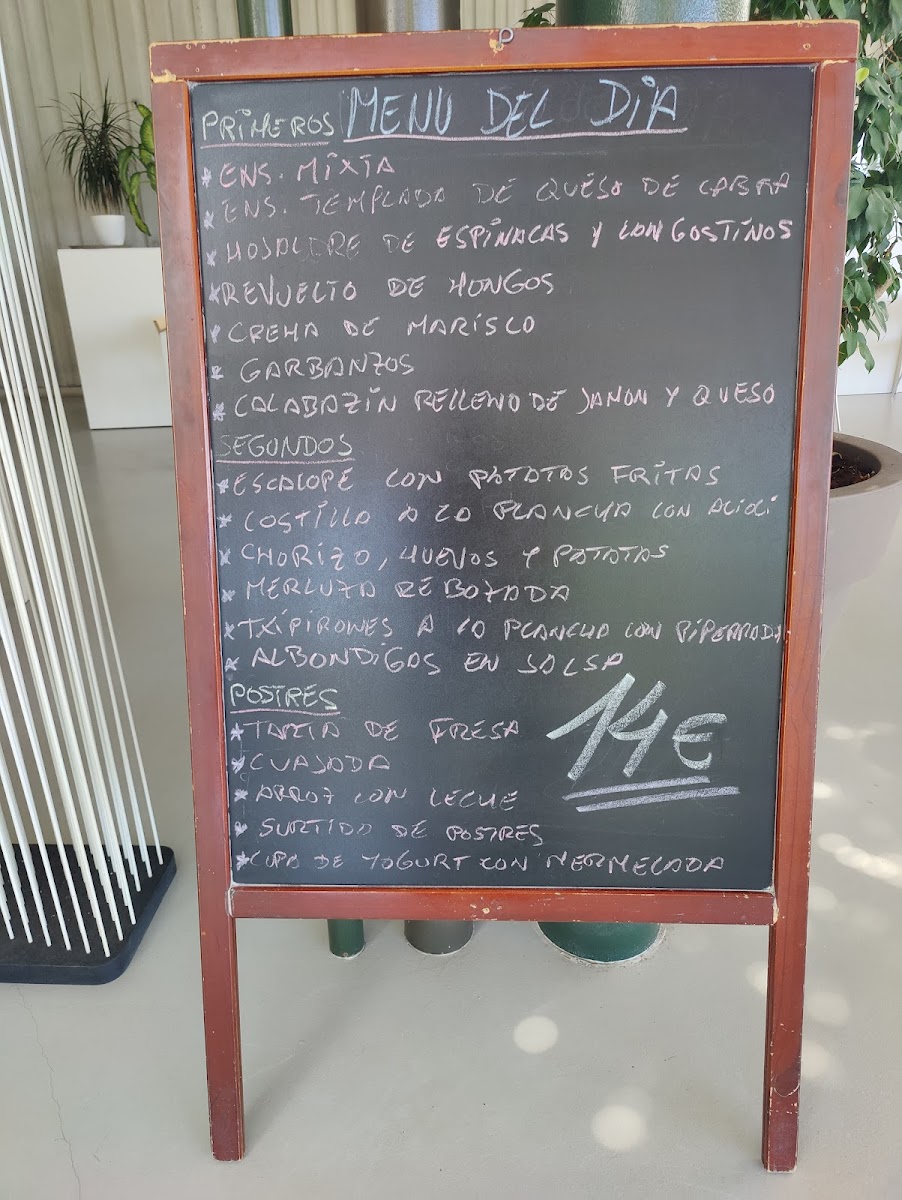 PRIMEROS MENU DEL DIA
* ENS. MIXTA
* ENS. TEMPLADA DE QUESO DE CABRA
* HOJALDRE DE ESPINACAS Y LANGOSTINOS
* REVUELTO DE HONGOS
* CREMA DE MARISCO
* GARBANZOS
* CALABAZIN RELLENO DE JAMON Y QUESO
SEGUNDOS
* ESCALOPE CON PATATAS FRITAS
* COSTILLA A LA PLANCHA CON ALIOLI
* CHORIZO, HUEVOS Y PATATAS
* MERLUZA REBOZADA
* TXIPIRONES A LA PLANCHA CON PIPERRADA
* ALBONDIGAS EN SALSA
POSTRES
14€
* TARTA DE FRESA
* CUAJADA
* ARROZ CON LECHE
* SURTIDO DE POSTRES
* COPA DE YOGURT CON MERMELADA